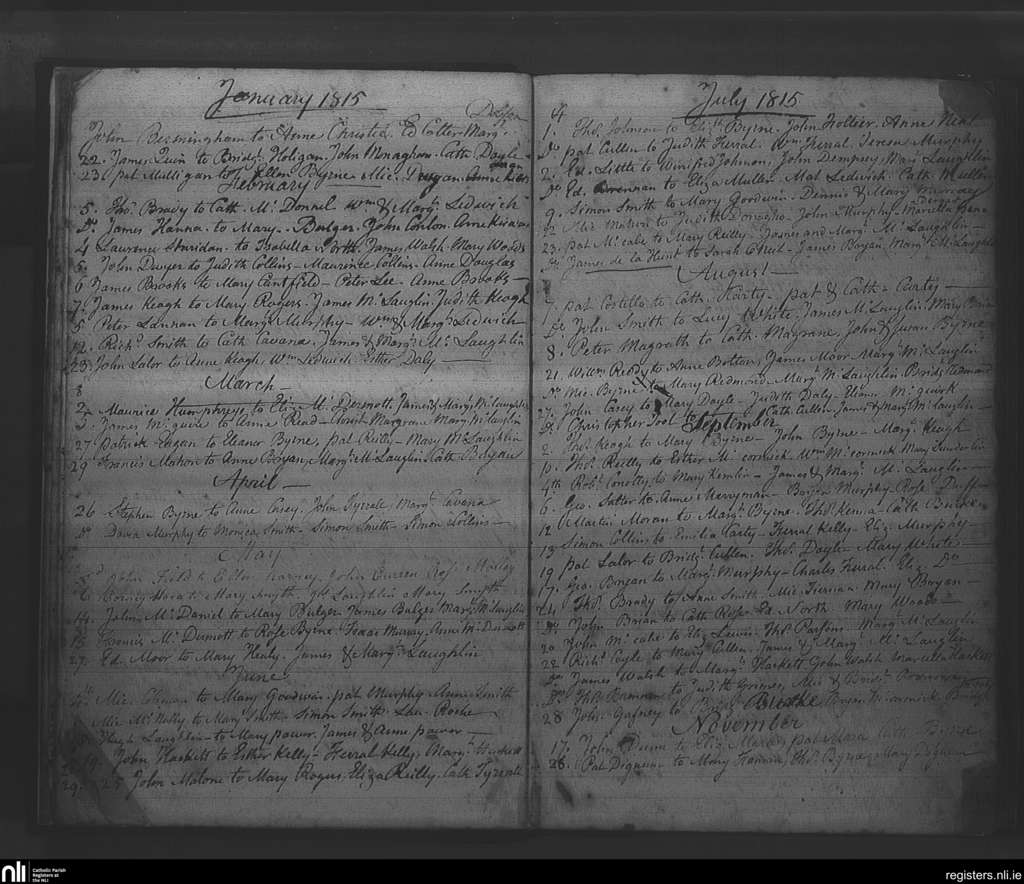 January 1815
John Bermingham to Anne Christel. Ed Cotter. Marg.
22. James Quin to Bridgt. Holigan. John Monaghan. Cath. Doyle
23 pat Mulligan to Ellen Byrne Mic. Anne
February
5. Thos. Brady to Cath. Mc. Donnel Wm & Margt. Ledwich
Do. James Hanna to Mary. Bulger. John Conlon. Anne
4 Laurence to Isabella North. James Walsh. Mary Woods
5. John Dwyer to Judith Collins. Maurince Collins. Anne Douglas
6 James Brooks to Mary Cantfield - Peter Lee. Anne Brooks
7 James Keogh to Mary Rogers. James Mc. Lauglin Judith Keogh
5 Peter Lannan to Margt. Murphy - Wm & Margt. Ledwich
12. Richd. Smith to Cath Cavana. James & Margt. Mc. Laughlin
23. John Lalor to Anne Keogh. Wm Ledwich Esther Daly
March
8
2 Maurice Humphrys to Eliz. Mc. Dermott. James & Margt. Mc. laughlin
James Mc. guire to Anne Read - Margrane Mary Mc. laughlin
27 Patrick Eagan to Eleanor Byrne, pat Reilly - Mary Mc. Laughlin
29 Francis Mahon to Anne Bryan, Margt. Mc. Lauglin. Cath Bryan
April
26 Stephen Byrne to Anne Casey. John Tyrrele Margt. Cavana
Do. David Murphy to Monica Smith - Simon Smith - Simon Hollins
May
John Field to Ellen John Curren Rose Molloy
to Mary Smyth. Laughlin Mary Smyth
14. John Mc. Daniel to Mary Bulger James Bulger Margt. Mc. Lauglin
Francis Mc. Dermott to Rose Byrne Isaac Murray. Anne Mc. Dermott
27. Ed. Moor to Mary Healy. James & Margt. Laughlin
June
4th Mic. Colman to Mary Goodwin. pat Murphy Anne Smith
Mic. Mc. Nally to Mary Smith. Simon Smith Roche
Hugh Laughlin to Mary power. James & Anne power
19. John Hackett to Esther Kelly - Ferral Kelly. Margt. Hackett
29. 25 John Malone to Mary Rogers. Eliza Reilly. Cath Tyrrell
July 1815
4
1. Thos. Johnson to Elizth. Byrne. John Hollier. Anne Neal
Do. pat Cullen to Judith Ferral. Wm Ferral Teresa Murphy
2. Ed. Little to Winifred Johnson. John Dempsey Mary Laughlin
Do. Ed. Brennan to Eliza Mullen. Mat Ledwich. Cath Mullen
9. Simon Smith to Mary Goodwin. Dennis & Mary Murray
Mic Malone to Judith Donogho. John Murphy. Mariella
23. pat Mc. cabe to Mary Reilly - James and Margt. Mc. Laughlin
James de la Hunt to Sarah O Neil - James Bryan, Margt. Mc. Laughlin
August
pat Costello to Cath. Carty - pat & Cath - Carty
John Smith to Lucy White. James Mc. Lauglin. Mary
8. Peter Magrath to Cath. Magrane. John & Susan Byrne
21. Willm Reddy to Anne Bolton. James Moor. Margt. Mc. Laughlin
Do. Mic. Byrne to Mary Redmond. Margt. Mc. Laughlin. Bridgt. Redmond
27. John Casey to Mary Doyle. Judith Daly. Eleanr. Mc. guirk
Do. Christopher Tool to Cath. Cullen. James & Margt. Mc. laughlin
September
2. Thos. Keogh to Mary Byrne - John Byrne - Margt. Keogh
Thos. Reilly to Esther Mc. cormick. Wm Mc. cormick. Mary Sunderlin
4th Robt. Conolly to Mary Kemlin - James & Margt. Mc. Laughlin
6. Geo. Salter to Anne Merryman - Bryan Murphy. Rose Duff
12. Martin Moran to Margt. Byrne. Thos. Kenna. Cath Bracken
13. Simon Collins to Emilia Carty - Ferral Kelly - Eliz. Murphy
pat Lalor to Bridgt. Cullen. Thos. Doyle - Mary White
19. Geo. Bryan to Margt. Murphy - Charles Ferral. Eliz. Do.
17. Thos. Brady to Anne Smith. Mic. Tiernan. Mary Bryan
John Brian to Cath Rose. Ed. North. Mary Woods
20. John Mc. cabe to Eliz. Lewis. Thos. Parsons. Margt. Mc. Laughlin
22. Richd. Coyle to Mary Cullen. James & Margt. Mc. Lauglin
James Walsh to Margt. Hackett John Walsh. Marcella Hackett
Do. Thos. Brennan to Judith Grimes. Mic & Bridgt. Brennan
28. John Gafney to Bridgt. Burke Bryan Mc. cormick.
November
17. John Dunn to Eliz. Mara. pat Mara Cath Byrne
26. Pat Dignam to Mary Hanna. Thos. Byrne. Mary
nli
Catholic Parish
Registers at
the NLI
registers.nli.ie